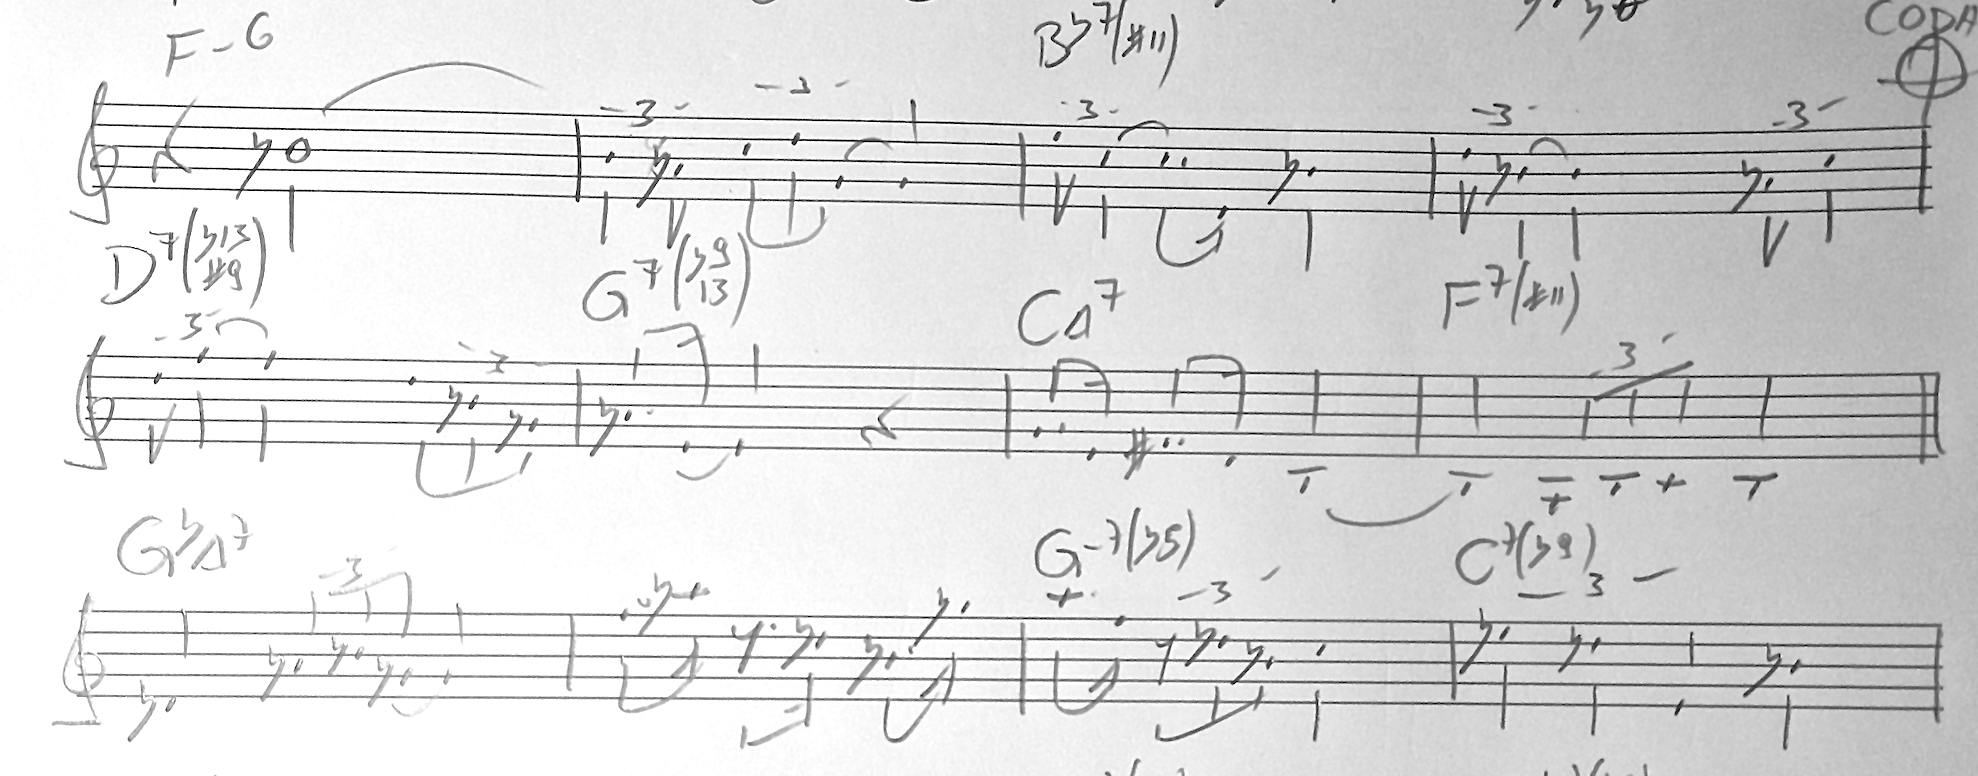 F-6 Bb7(#11) CODA
-3- -3- -3- -3- -3-
D7(b13 #9) G7(b9 13) C△7 F7(#11)
-3- -3- 3
Gb△7 G-7(b5) C7(b9)
-3 -3- -3-